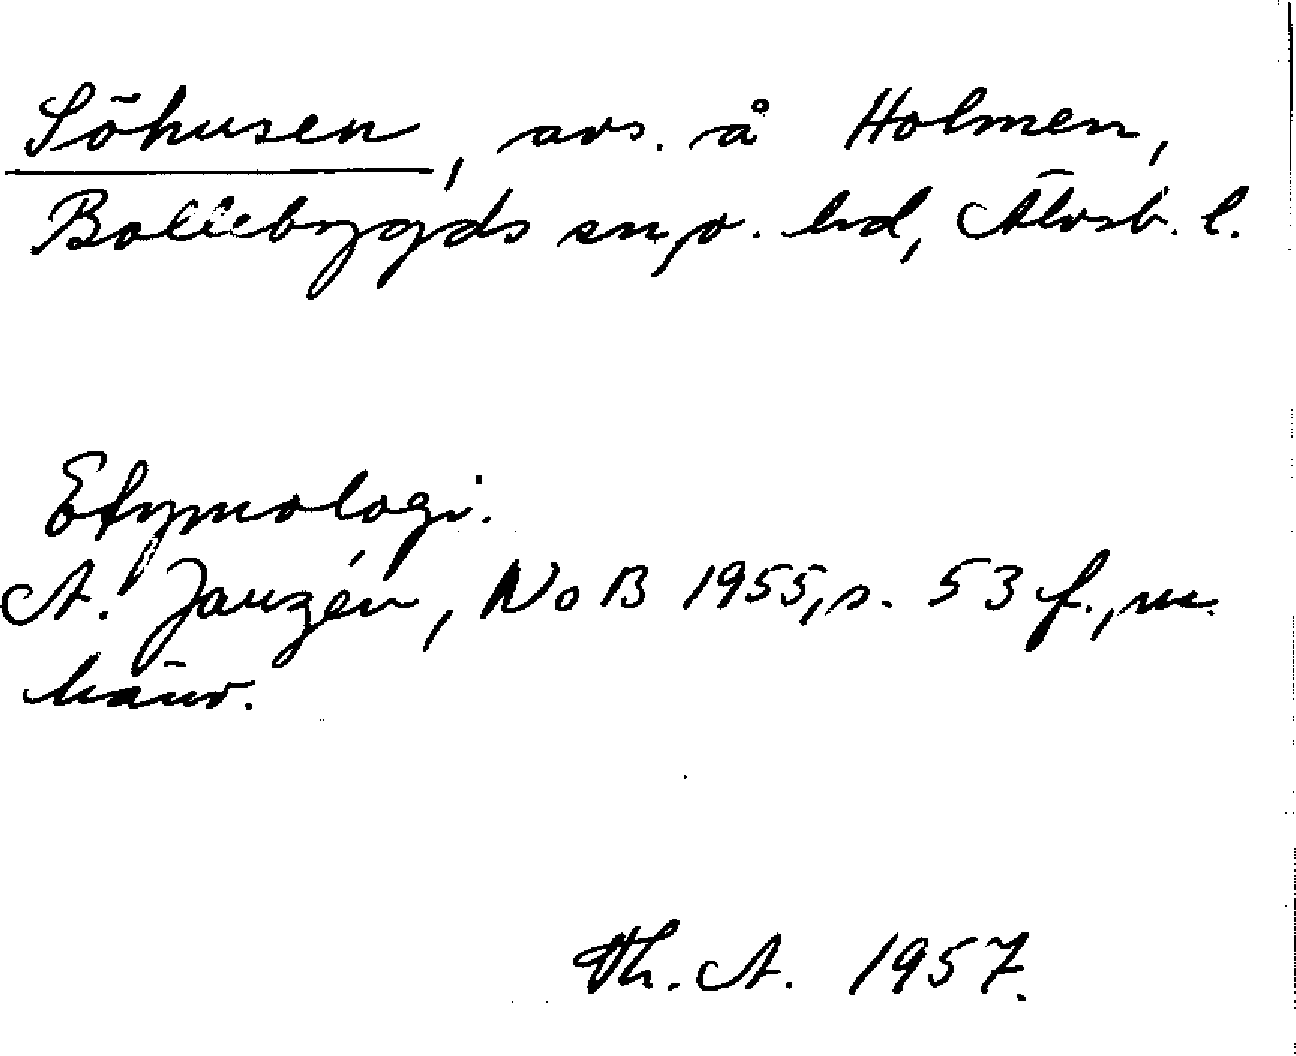 Söhusen, avs. å Holmen,
Bollebygds sn, o. hd, Älvsb. l.
Etymologi.
A. Janzén, NoB 1955, s. 53 f., m.
hänv.
Th. A. 1957.